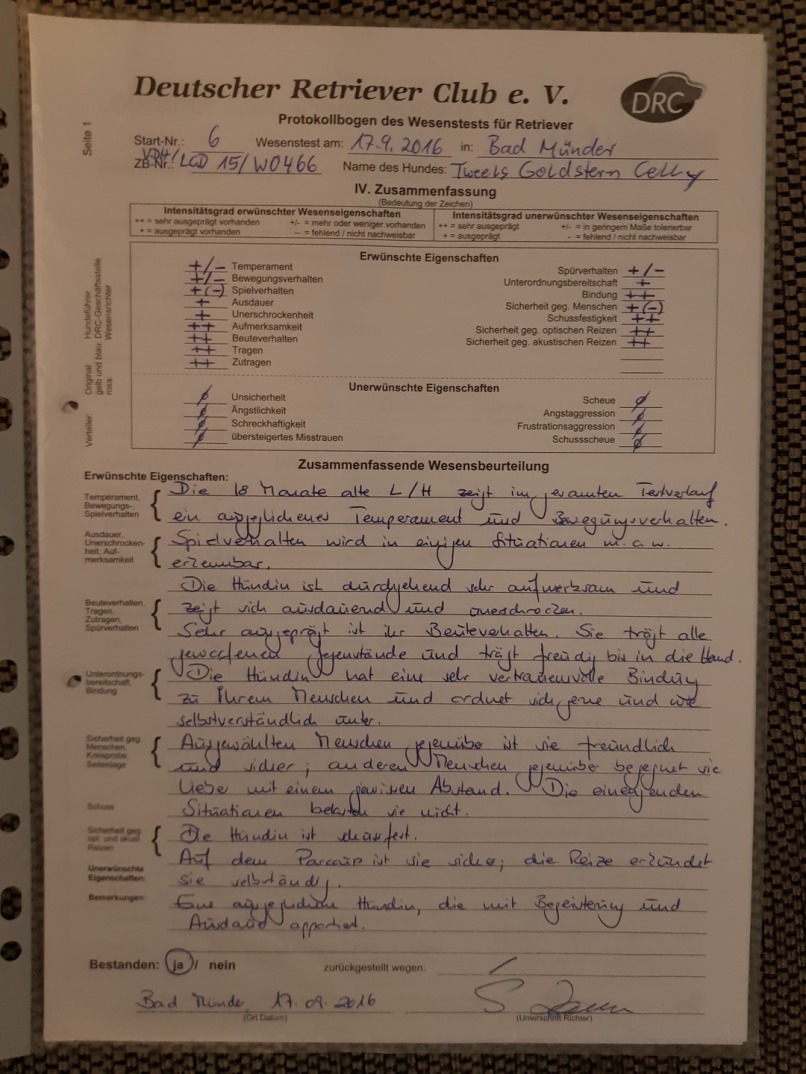 Deutscher Retriever Club e. V.
DRC
Protokollbogen des Wesenstests für Retriever
Seite 1
Start-Nr.: 6 Wesenstest am: 17.9.2016 in: Bad Münder
ZB-Nr.: VDH/LCD 15/W0466 Name des Hundes: Tweels Goldstern Celly
IV. Zusammenfassung
(Bedeutung der Zeichen)
Intensitätsgrad erwünschter Wesenseigenschaften
++ = sehr ausgeprägt vorhanden +/- = mehr oder weniger vorhanden
+ = ausgeprägt vorhanden – = fehlend / nicht nachweisbar
Intensitätsgrad unerwünschter Wesenseigenschaften
++ = sehr ausgeprägt +/- = in geringem Maße tolerierbar
+ = ausgeprägt - = fehlend / nicht nachweisbar
Erwünschte Eigenschaften
+/- Temperament
+/- Bewegungsverhalten
+(-) Spielverhalten
+ Ausdauer
+ Unerschrockenheit
++ Aufmerksamkeit
++ Beuteverhalten
++ Tragen
++ Zutragen
Spürverhalten +/-
Unterordnungsbereitschaft +
Bindung ++
Sicherheit geg. Menschen +(-)
Schussfestigkeit ++
Sicherheit geg. optischen Reizen ++
Sicherheit geg. akustischen Reizen ++
Unerwünschte Eigenschaften
ø Unsicherheit
ø Ängstlichkeit
ø Schreckhaftigkeit
ø übersteigertes Misstrauen
Scheue ø
Angstaggression ø
Frustrationsaggression ø
Schussscheue ø
Verteiler: Original: Hundeführer
gelb und blau: DRC-Geschäftsstelle
rosa: Wesensrichter
Zusammenfassende Wesensbeurteilung
Erwünschte Eigenschaften:
Temperament,
Bewegungs-,
Spielverhalten
Die 18 Monate alte L/H zeigt im gesamten Testverlauf
ein ausgeglichenes Temperament und Bewegungsverhalten.
Ausdauer,
Unerschrocken-
heit, Auf-
merksamkeit
Spielverhalten wird in einigen Situationen m.o.w.
erkennbar.
Die Hündin ist durchgehend sehr aufmerksam und
Beuteverhalten,
Tragen,
Zutragen,
Spürverhalten
zeigt sich ausdauernd und unerschrocken.
Sehr ausgeprägt ist ihr Beuteverhalten. Sie trägt alle
geworfenen Gegenstände und trägt freudig bis in die Hand.
Unterordnungs-
bereitschaft,
Bindung
Die Hündin hat eine sehr vertrauensvolle Bindung
zu Ihrem Menschen und ordnet sich gerne und wie
selbstverständlich unter.
Sicherheit geg.
Menschen,
Kreisprobe,
Seitenlage
Ausgewählten Menschen gegenüber ist sie freundlich
und sicher; anderen Menschen gegenüber begegnet sie
lieber mit einem gewissen Abstand. Die einengenden
Schuss
Situationen belasten sie nicht.
Sicherheit geg.
opt. und akust.
Reizen
Die Hündin ist schussfest.
Auf dem Parcour ist sie sicher; die Reize erkundet
Unerwünschte
Eigenschaften:
sie selbständig.
Bemerkungen:
Eine ausgeglichene Hündin, die mit Begeisterung und
Ausdauer apportiert.
Bestanden: ja / nein zurückgestellt wegen: /
Bad Münder, 17.09.2016
(Ort Datum) (Unterschrift Richter)